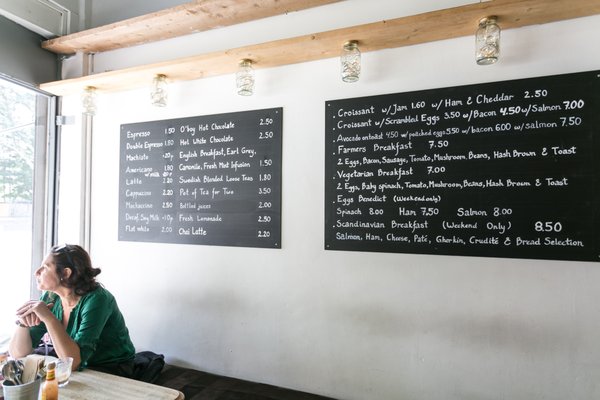 Espresso 1.50
Double Espresso 1.80
Machiato .20p
Americano 1.80
w/milk
Latte 2.20
Cappuccino 2.20
Mochaccino 2.50
Decaf, Soy Milk +10p
Flat white 2.00
O'boy Hot Chocolate 2.50
Hot White Chocolate 2.50
English Breakfast, Earl Grey,
Camomile, Fresh Mint Infusion 1.50
Swedish Blended Loose Teas 1.80
Pot of Tea for Two 3.50
Bottled juices 2.00
Fresh Lemonade 2.50
Chai Latte 2.20
Croissant w/Jam 1.60 w/ Ham & Cheddar 2.50
Croissant w/Scrambled Eggs 3.50 w/Bacon 4.50 w/Salmon 7.00
Avocado on toast 4.50 w/ poached eggs 5.50 w/ bacon 6.00 w/ Salmon 7.50
Farmers Breakfast 7.50
2 Eggs, Bacon, Sausage, Tomato, Mushroom, Beans, Hash Brown & Toast
Vegetarian Breakfast 7.00
2 Eggs, Baby spinach, Tomato, Mushroom, Beans, Hash Brown & Toast
Eggs Benedict (Weekend only)
Spinach 8.00 Ham 7.50 Salmon 8.00
Scandinavian Breakfast (Weekend Only) 8.50
Salmon, Ham, Cheese, Paté, Gherkin, Crudité & Bread Selection